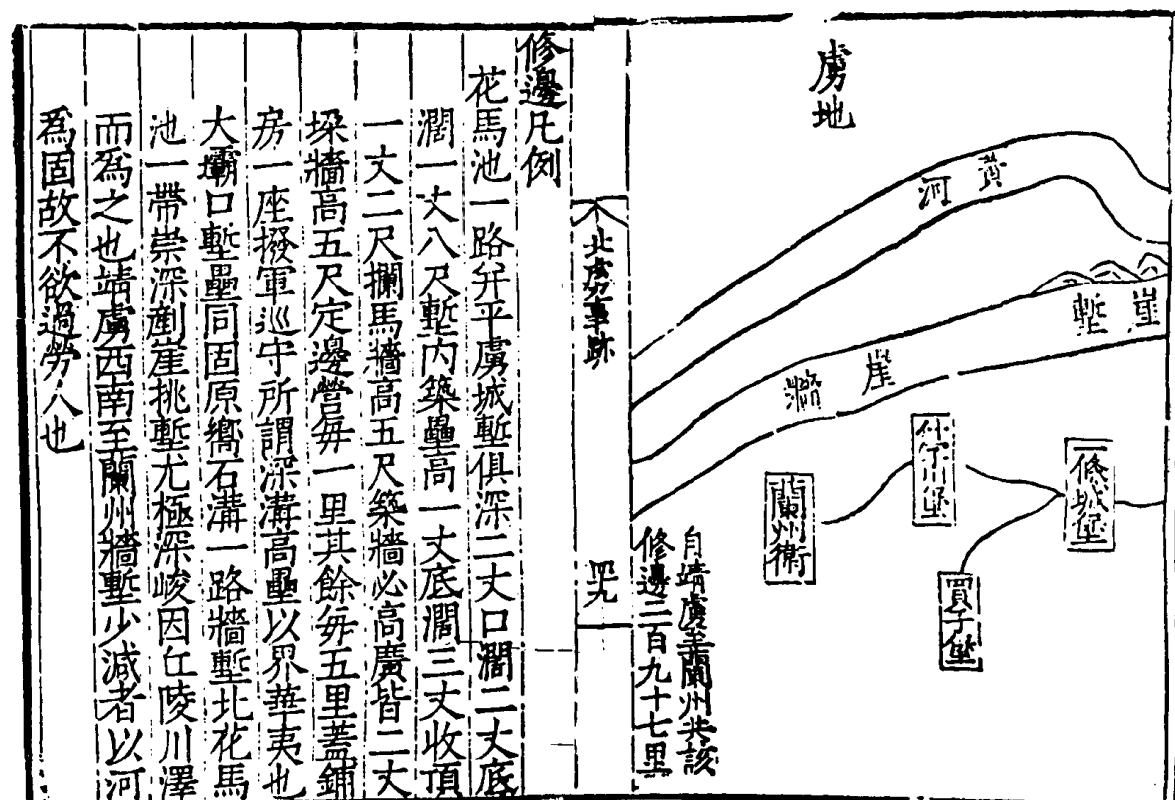 虜地
黃河
崖塹
崖牆
一條城堡
買子堡
蘭州衛
自靖虜至蘭州共該
修邊二百九十七里
北虜事跡
四九
修邊凡例
花馬池一路弁平虜城塹俱深二丈口濶二丈底
濶一丈八尺塹內築壘高一丈底濶三丈收頂
一丈二尺攔馬牆高五尺築牆必高廣皆二丈
垜牆高五尺定邊營每一里其餘每五里蓋鋪
房一座撥軍巡守所謂深溝高壘以界華夷也
大壩口塹壘同固原嚮石溝一路牆塹北花馬
池一帶崇深剷崖挑塹尤極深峻因丘陵川澤
而為之也靖虜西南至蘭州牆塹少減者以河
為固故不欲過勞人也